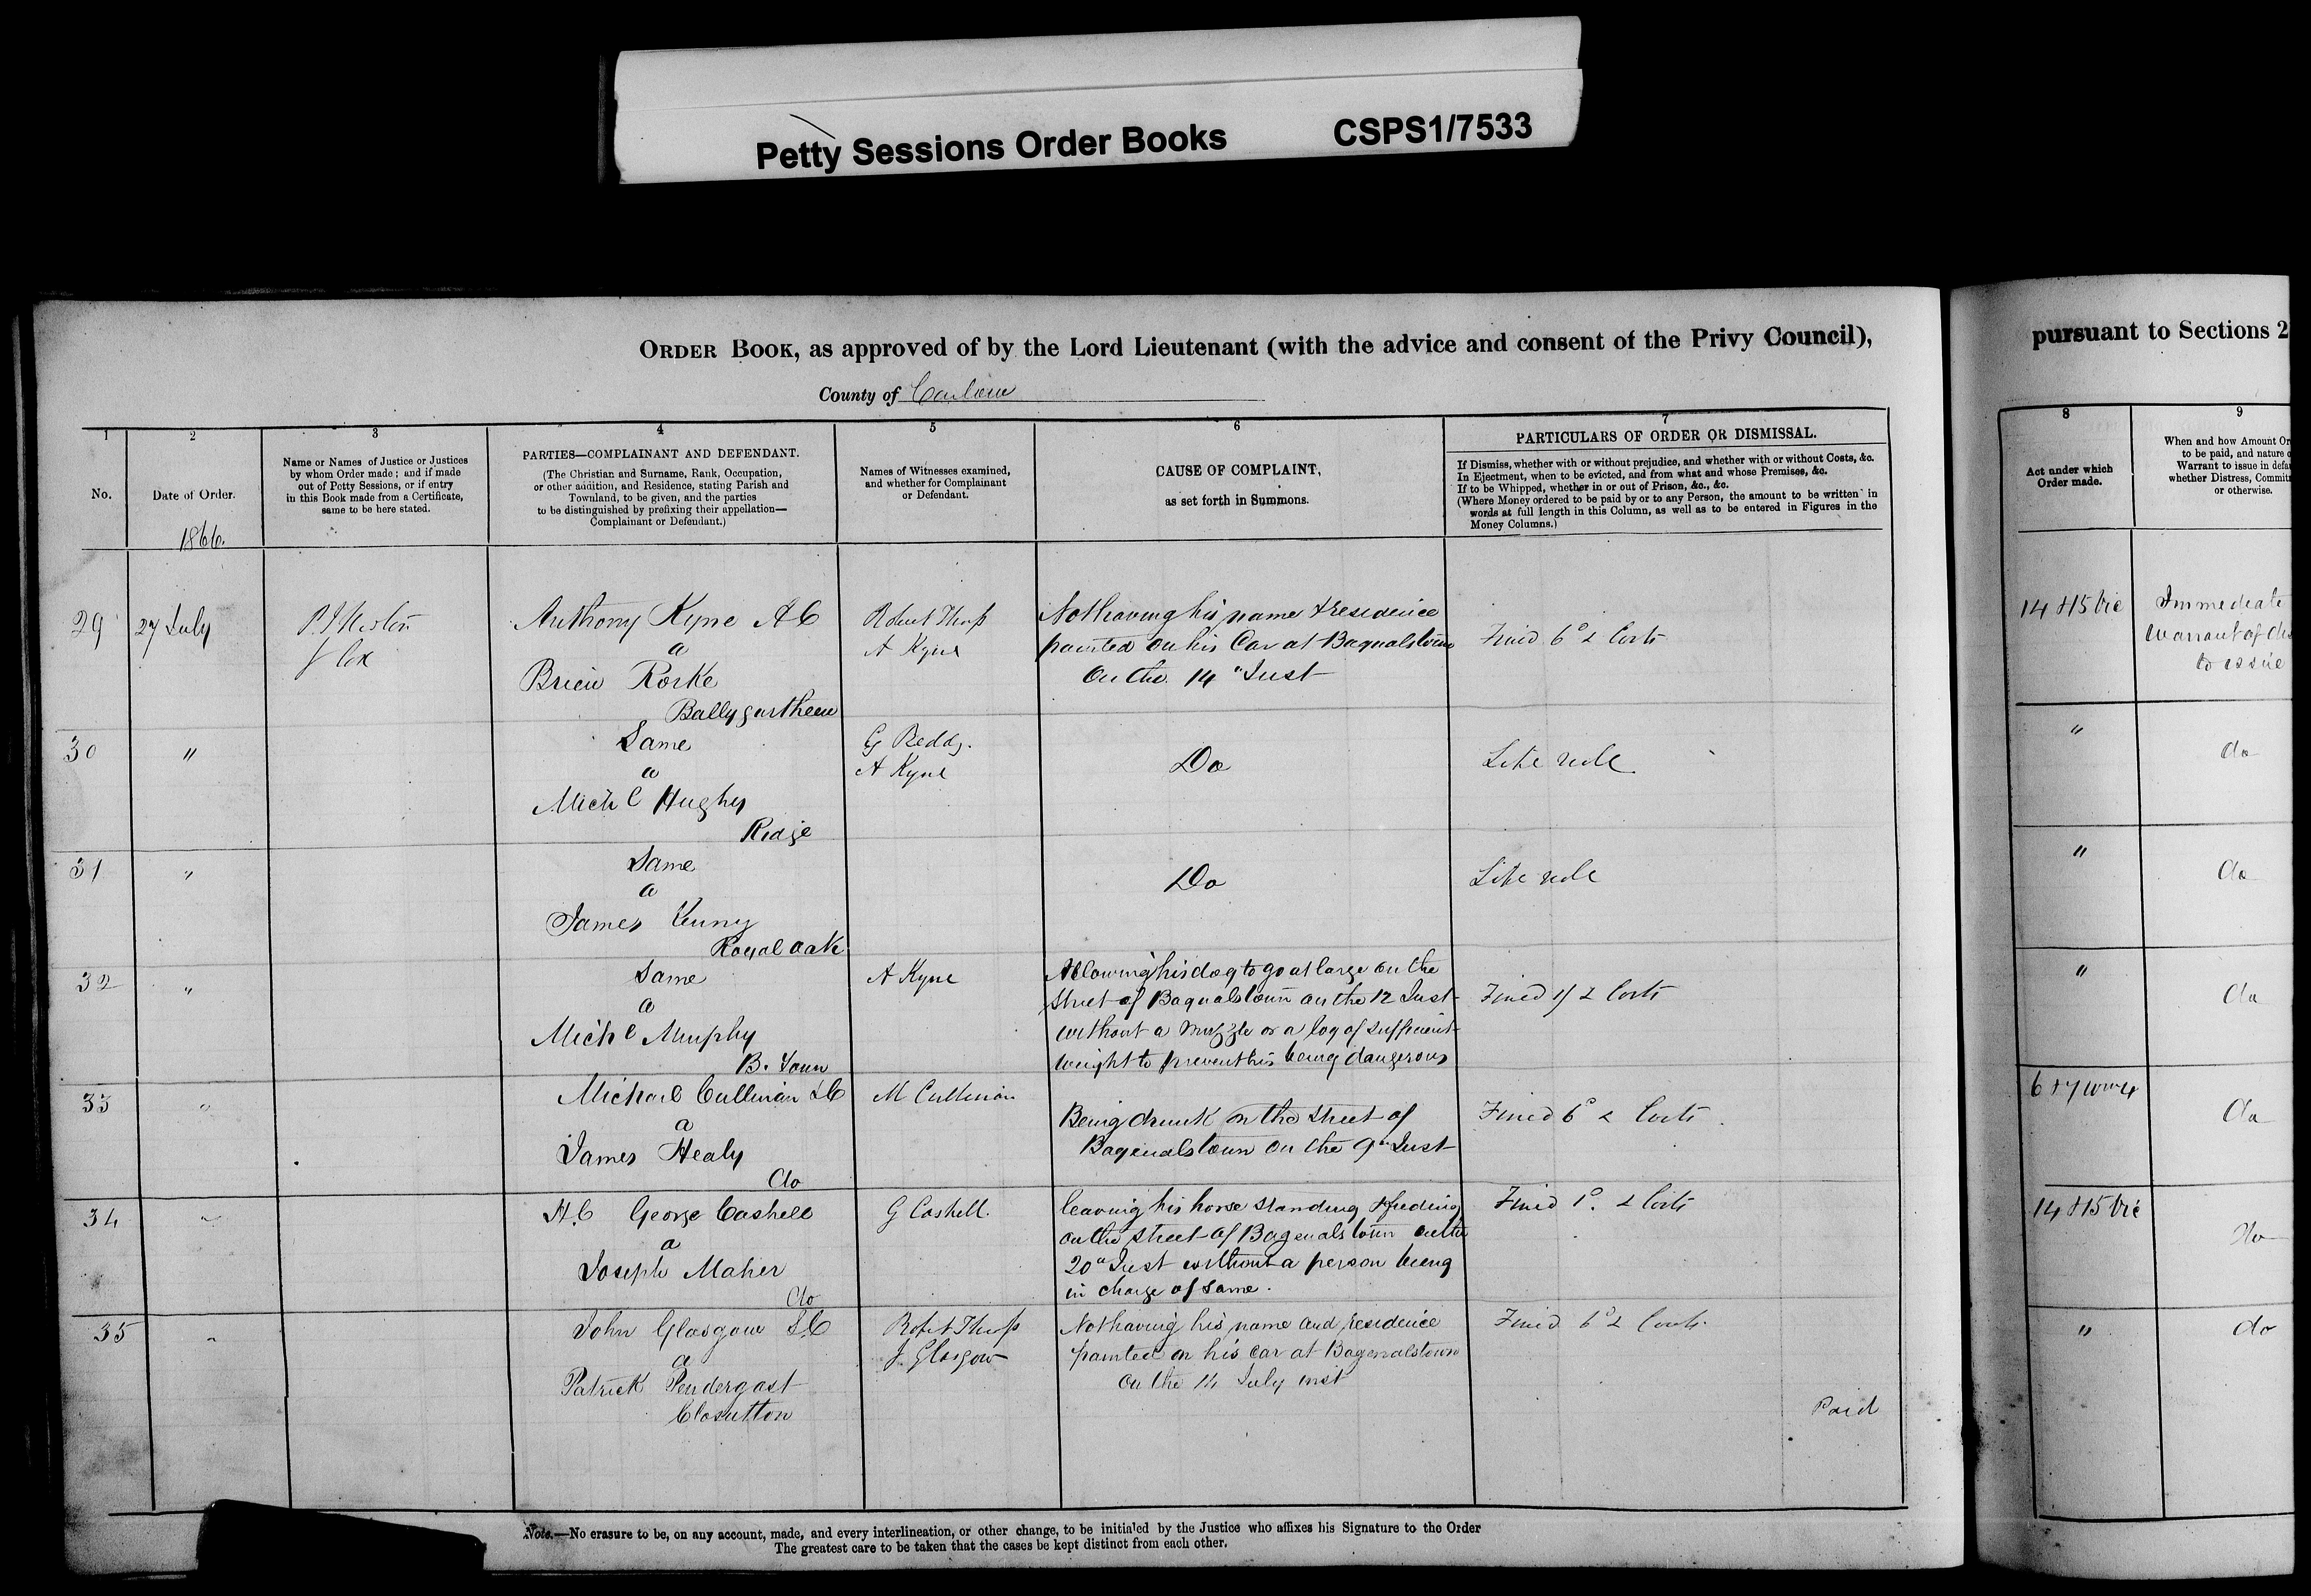 Petty Sessions Order Books CSPS1/7533
ORDER BOOK, as approved of by the Lord Lieutenant (with the advice and consent of the Privy Council),
pursuant to Sections 2
County of Carlow
1
2
3
4
5
6
7
8
9
No.
Date of Order.
1866.
Name or Names of Justice or Justices
by whom Order made; and if made
out of Petty Sessions, or if entry
in this Book made from a Certificate,
same to be here stated.
PARTIES—COMPLAINANT AND DEFENDANT.
(The Christian and Surname, Rank, Occupation,
or other addition, and Residence, stating Parish and
Townland, to be given, and the parties
to be distinguished by prefixing their appellation—
Complainant or Defendant.)
Names of Witnesses examined,
and whether for Complainant
or Defendant.
CAUSE OF COMPLAINT,
as set forth in Summons.
PARTICULARS OF ORDER OR DISMISSAL.
If Dismiss, whether with or without prejudice, and whether with or without Costs, &c.
In Ejectment, when to be evicted, and from what and whose Premises, &c.
If to be Whipped, whether in or out of Prison, &c., &c.
(Where Money ordered to be paid by or to any Person, the amount to be written in
words at full length in this Column, as well as to be entered in Figures in the
Money Columns.)
Act under which
Order made.
When and how Amount Or
to be paid, and nature o
Warrant to issue in defa
whether Distress, Commit
or otherwise.
29
27 July
J Cox
Anthony Kyne A C
a
Brien Rorke
Robert Thorp
A Kyne
Not having his name & residence
painted on his Car at Bagnalstown
On the 14 " Inst
Fined 6 d & Costs
14 & 15 Vic
Immediate
warrant of dis
to issue
30
"
Same
a
Mich l Hughes
Ridge
G Reddy.
A Kyne
Do
Like rule
"
do
31
"
Same
a
James Kenny
Royal oak
Do
Like rule
"
do
32
"
Same
a
Mich l Murphy
B. Town
A Kyne
Allowing his dog to go at large on the
Street of Bagnalstown on the 12 Inst
without a muzzle or a log of sufficient
weight to prevent his being dangerous
Fined 1/ & Costs
"
do
33
"
Michael Cullinan S C
a
James Healy
do
M Cullinan
Being drunk on the Street of
Bagenalstown on the 9 " Inst
Fined 6 d & Costs
6 & 7 Wm 4
do
34
"
H. C George Cashell
a
Joseph Maher
do
G Cashell.
leaving his horse standing & feeding
on the Street of Bagenalstown on the
20 " Inst without a person being
in charge of same.
Fined 1 d. & Costs
14 & 15 Vic
do
35
"
John Glasgow S. C
a
Patrick Pendergast
Closutton
Robt Thorp
J. Glasgow
Not having his name and residence
painted on his car at Bagenalstown
On the 14 July inst
Fined 6 d & Costs.
Paid
"
do
Note.—No erasure to be, on any account, made, and every interlineation, or other change, to be initialed by the Justice who affixes his Signature to the Order
The greatest care to be taken that the cases be kept distinct from each other.